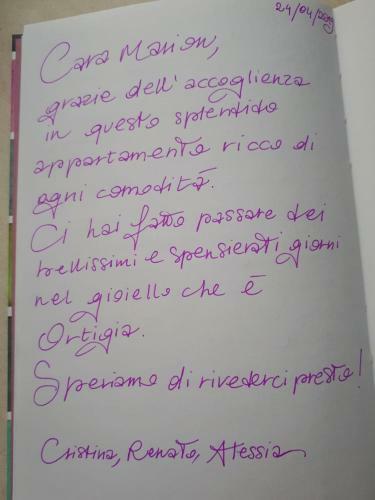 24/04/2019
Cara Marion,
grazie dell'accoglienza
in questo splendido
appartamento ricco di
ogni comodità.
Ci hai fatto passare dei
bellissimi e spensierati giorni
nel gioiello che è
Ortigia.
Speriamo di rivederci presto!
Cristina, Renato, Alessia